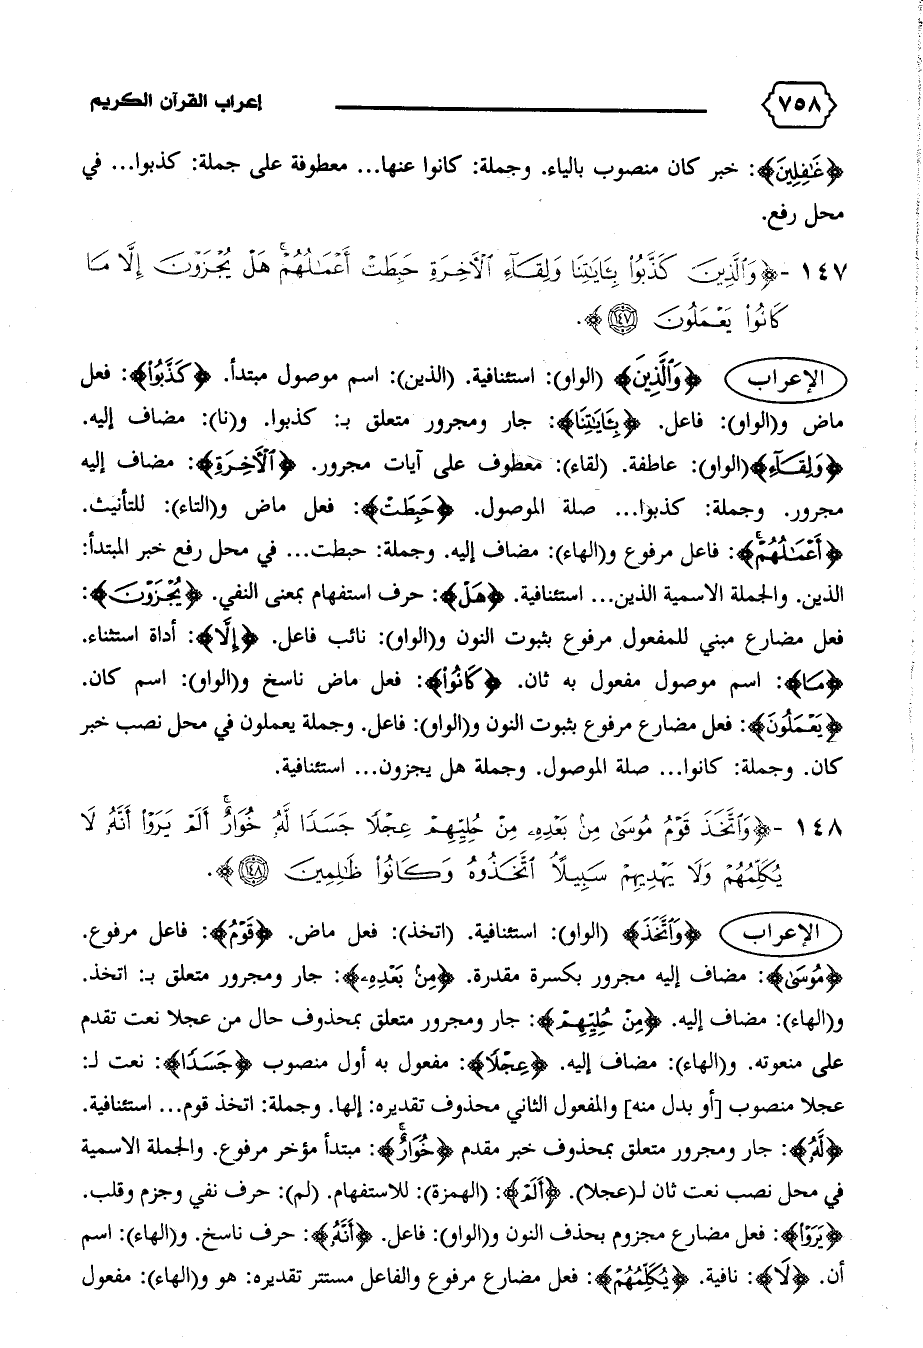 ٧٥٨ إعراب القرآن الكريم
﴿غَٰفِلِينَ﴾: خبر كان منصوب بالياء. وجملة: كانوا عنها... معطوفة على جملة: كذبوا... في
محل رفع.
١٤٧ - ﴿وَٱلَّذِينَ كَذَّبُواْ بِـَٔايَٰتِنَا وَلِقَآءِ ٱلْأَخِرَةِ حَبِطَتْ أَعْمَٰلُهُمْۚ هَلْ يُجْزَوْنَ إِلَّا مَا
كَانُواْ يَعْمَلُونَ ١٤٧﴾.
الإعراب ﴿وَٱلَّذِينَ﴾ (الواو): استئنافية. (الذين): اسم موصول مبتدأ. ﴿كَذَّبُواْ﴾: فعل
ماض و(الواو): فاعل. ﴿بِـَٔايَٰتِنَا﴾: جار ومجرور متعلق بـ: كذبوا. و(نا): مضاف إليه.
﴿وَلِقَآءِ﴾(الواو): عاطفة. (لقاء): معطوف على آيات مجرور. ﴿ٱلْأَخِرَةِ﴾: مضاف إليه
مجرور. وجملة: كذبوا... صلة الموصول. ﴿حَبِطَتْ﴾: فعل ماض و(التاء): للتأنيث.
﴿أَعْمَٰلُهُمْۚ﴾: فاعل مرفوع و(الهاء): مضاف إليه. وجملة: حبطت... في محل رفع خبر المبتدأ:
الذين. والجملة الاسمية الذين... استئنافية. ﴿هَلْ﴾: حرف استفهام بمعنى النفي. ﴿يُجْزَوْنَ﴾:
فعل مضارع مبني للمفعول مرفوع بثبوت النون و(الواو): نائب فاعل. ﴿إِلَّا﴾: أداة استثناء.
﴿مَا﴾: اسم موصول مفعول به ثان. ﴿كَانُواْ﴾: فعل ماض ناسخ و(الواو): اسم كان.
﴿يَعْمَلُونَ﴾: فعل مضارع مرفوع بثبوت النون و(الواو): فاعل. وجملة يعملون في محل نصب خبر
كان. وجملة: كانوا... صلة الموصول. وجملة هل يجزون... استئنافية.
١٤٨ - ﴿وَٱتَّخَذَ قَوْمُ مُوسَىٰ مِنۢ بَعْدِهِۦ مِنْ حُلِيِّهِمْ عِجْلًا جَسَدًا لَّهُۥ خُوَارٌۚ أَلَمْ يَرَوْاْ أَنَّهُۥ لَا
يُكَلِّمُهُمْ وَلَا يَهْدِيهِمْ سَبِيلًاۘ ٱتَّخَذُوهُ وَكَانُواْ ظَٰلِمِينَ ١٤٨﴾.
الإعراب ﴿وَٱتَّخَذَ﴾ (الواو): استئنافية. (اتخذ): فعل ماض. ﴿قَوْمُ﴾: فاعل مرفوع.
﴿مُوسَىٰ﴾: مضاف إليه مجرور بكسرة مقدرة. ﴿مِنۢ بَعْدِهِۦ﴾: جار ومجرور متعلق بـ: اتخذ.
و(الهاء): مضاف إليه. ﴿مِنْ حُلِيِّهِمْ﴾: جار ومجرور متعلق بمحذوف حال من عجلا نعت تقدم
على منعوته. و(الهاء): مضاف إليه. ﴿عِجْلًا﴾: مفعول به أول منصوب ﴿جَسَدًا﴾: نعت لـ:
عجلا منصوب [أو بدل منه] والمفعول الثاني محذوف تقديره: إلها. وجملة: اتخذ قوم... استئنافية.
﴿لَّهُۥ﴾: جار ومجرور متعلق بمحذوف خبر مقدم ﴿خُوَارٌۚ﴾: مبتدأ مؤخر مرفوع. والجملة الاسمية
في محل نصب نعت ثان لـ(عجلا). ﴿أَلَمْ﴾: (الهمزة): للاستفهام. (لم): حرف نفي وجزم وقلب.
﴿يَرَوْاْ﴾: فعل مضارع مجزوم بحذف النون و(الواو): فاعل. ﴿أَنَّهُۥ﴾: حرف ناسخ. و(الهاء): اسم
أن. ﴿لَا﴾: نافية. ﴿يُكَلِّمُهُمْ﴾: فعل مضارع مرفوع والفاعل مستتر تقديره: هو و(الهاء): مفعول